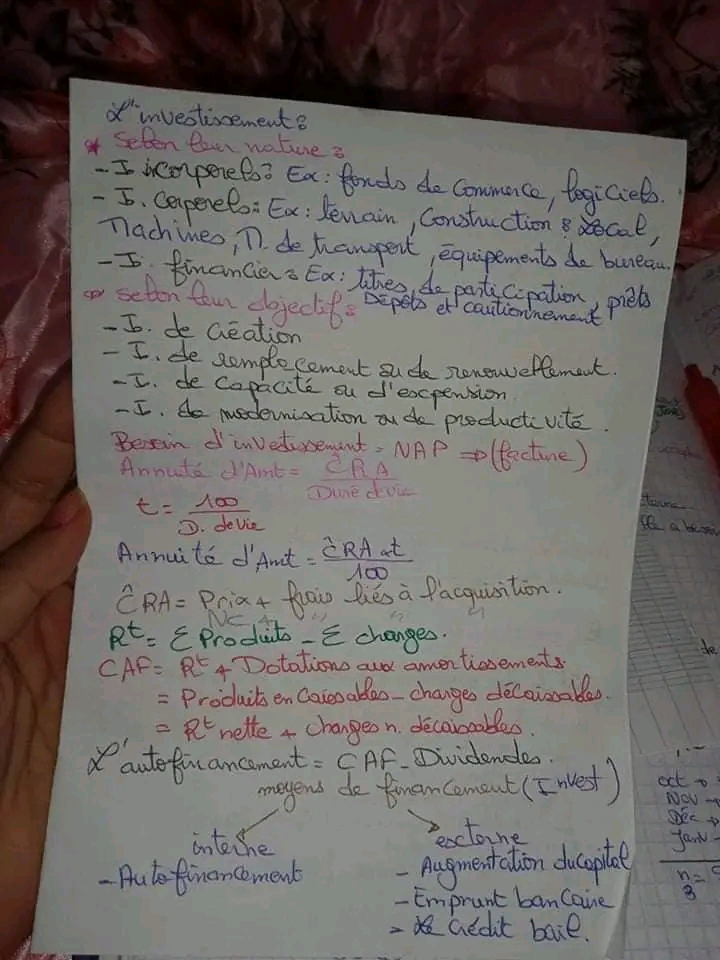 L'investissement :
* Selon leur nature :
- I. icorporels : Ex : fonds de Commerce, logiciels.
- I. corporels : Ex : terrain, Construction : Local,
Machines, M. de transport, équipements de bureau.
- I. financier : Ex : titres de participation, prêts
Dépôts et cautionnement
⇨ Selon leur objectif :
- I. de création
- I. de remplacement ou de renouvellement.
- I. de capacité ou d'escpension.
- I. de modernisation ou de productivité.
Besoin d'invetissement = NAP ⇒ (facture)
Annuté d'Amt = ĈRA / Duré de vie
t = 100 / D. de vie
Annuité d'Amt = ĈRA × t / 100
ĈRA = Prix + frais liés à l'acquisition.
NC + " " "
Rt = Σ Produits - Σ charges.
CAF = Rt + Dotations aux amortissements.
= Produits encaissables - charges décaissables.
= Rt nette + charges n. décaissables.
L'autofinancement = CAF - Dividendes.
moyens de financement (Invest)
interne
- Autofinancement
externe
- Augmentation du capital
- Emprunt bancaire
- Crédit bail.
oct →
Nov →
Déc →
Janv -
n =
3
de